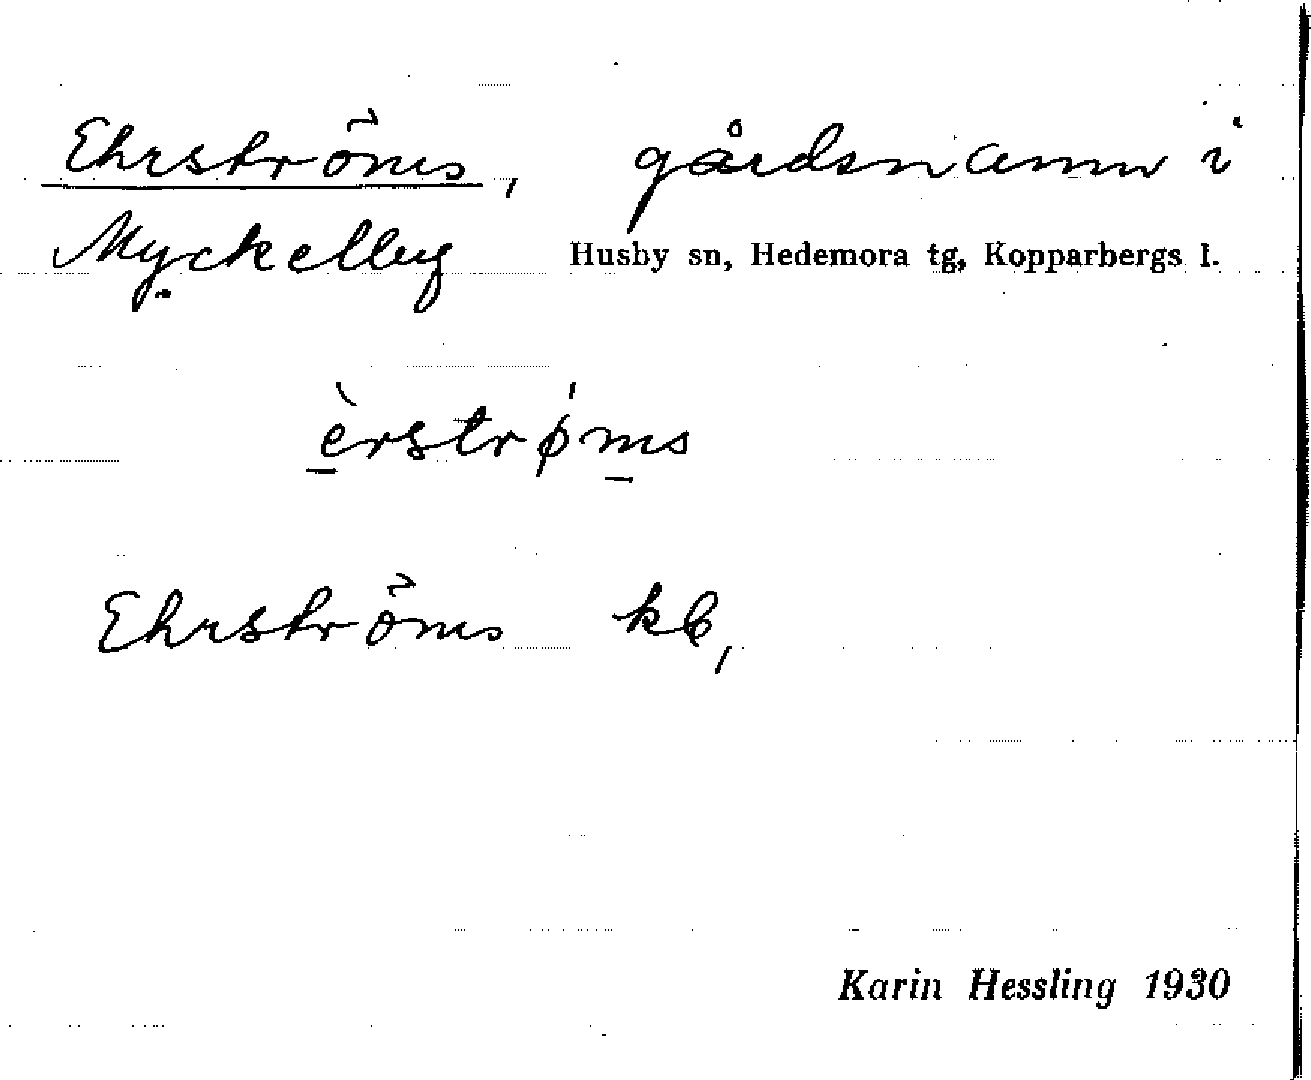 Ehrströms, gårdsnamn i
Myckelby Husby sn, Hedemora tg, Kopparbergs l.
èrstrǿms
Ehrströms kb,
Karin Hessling 1930